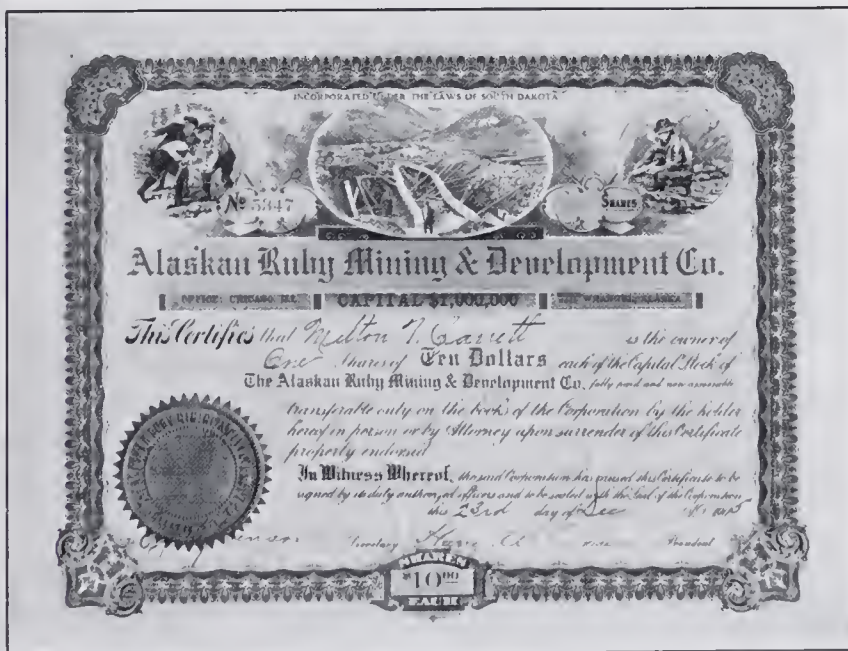 INCORPORATED UNDER THE LAWS OF SOUTH DAKOTA
No 5347
SHARES
Alaskan Ruby Mining & Development Co.
OFFICE: CHICAGO, ILL. CAPITAL $1,000,000 WRANGEL, ALASKA
This Certifies that Melton T. Garrett is the owner of
One Shares of Ten Dollars each of the Capital Stock of
The Alaskan Ruby Mining & Development Co. fully paid and non assessable
transferable only on the books of the Corporation by the holder
hereof in person or by Attorney upon surrender of this Certificate
properly endorsed
In Witness Whereof, the said Corporation has caused this Certificate to be
signed by its duly authorized officers and to be sealed with the Seal of the Corporation
this 23rd day of Dec
Secretary President
SHARES
$10.00
EACH